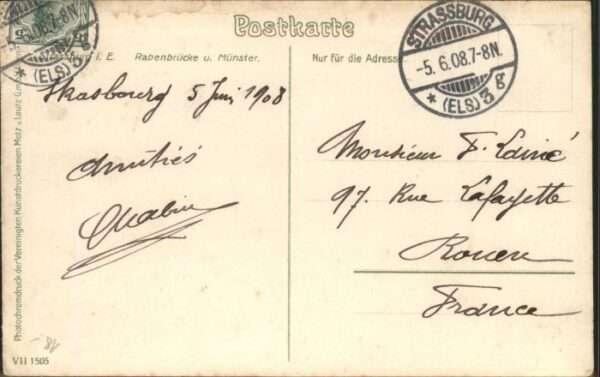 Postkarte
i. E. Rabenbrücke u. Münster.
Nur für die Adresse
STRASSBURG
-5.6.08.7-8N.
* (ELS) 3 g
* (ELS)
Strasbourg 5 Juin 1908
Amitiés
Monsieur F. Lainé
97. Rue Lafayette
Rouen
France
Photochromdruck der Vereinigten Kunstdruckereien Metz u. Lautz G.m.
VII 1505